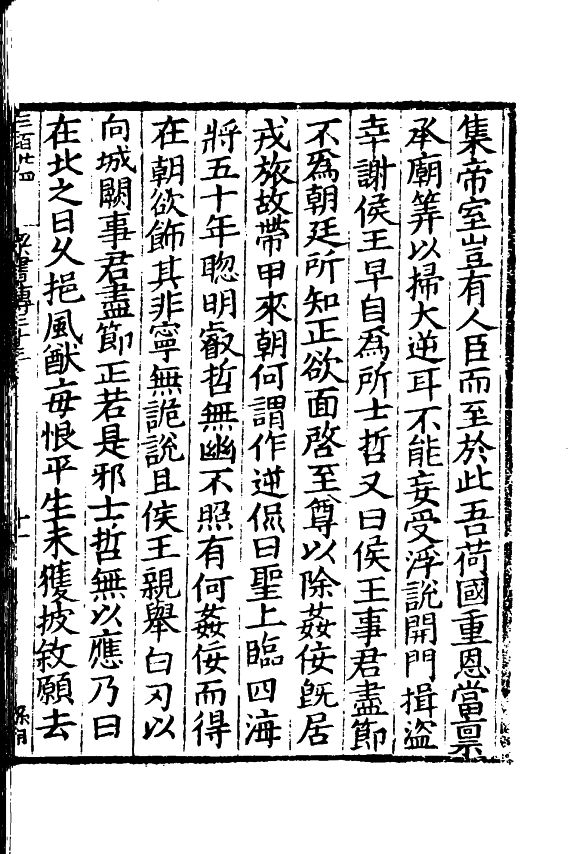 集帝室豈有人臣而至於此吾荷國重恩當稟
承廟筭以掃大逆耳不能妄受浮說開門揖盜
幸謝侯王早自為所士哲又曰侯王事君盡節
不為朝廷所知正欲面啓至尊以除姦佞旣居
戎旅故帶甲來朝何謂作逆侃曰聖上臨四海
將五十年聦明叡哲無幽不照有何姦佞而得
在朝欲飾其非寧無詭說且侯王親舉白刃以
向城闕事君盡節正若是邪士哲無以應乃曰
在北之日久挹風猷每恨平生未獲披敘願去
三百廿四
梁書傳三十三
十一